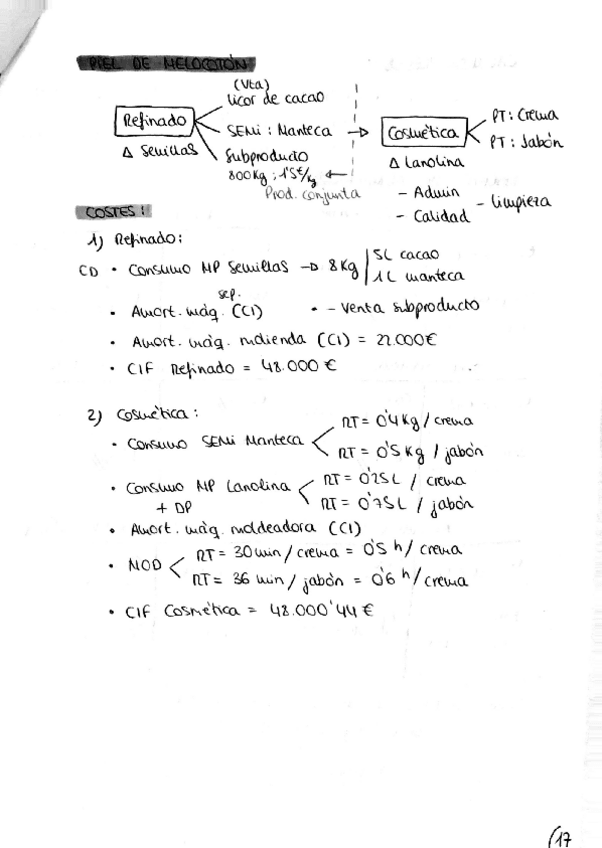 PIEL DE MELOCOTÓN
(Vta)
licor de cacao
Refinado
SEMi : Manteca
Δ Semillas
Subproducto
800 Kg ; 1'5 €/kg
Prod. conjunta
Cosmética
PT : Crema
PT : Jabón
Δ Lanolina
- Admin
- Calidad
- limpieza
COSTES :
1) Refinado :
CD • Consumo MP Semillas → 8 Kg | 5L cacao
1 L manteca
sep.
• Amort. máq. (CI) • - Venta subproducto
• Amort. máq. molienda (CI) = 22.000 €
• CIF Refinado = 48.000 €
2) Cosmética :
RT = 0'4 Kg / crema
• Consumo SEMi Manteca
RT = 0'5 Kg / jabón
RT = 0'25 L / crema
• Consumo MP Lanolina
+ DP
RT = 0'75 L / jabón
• Amort. máq. moldeadora (CI)
RT = 30 min / crema = 0'5 h / crema
• MOD
RT = 36 min / jabón = 0'6 h / crema
• CIF Cosmética = 48.000'44 €
17